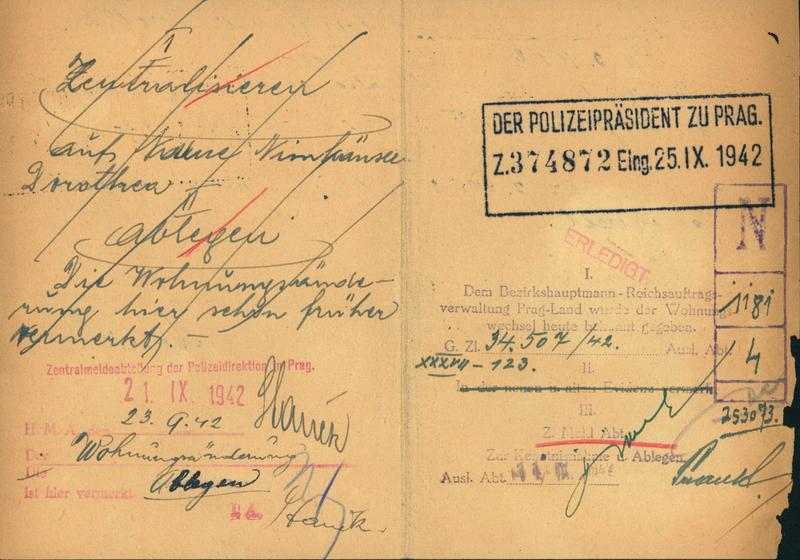 I
Zentralisieren
auf Name
Dorothea
II
ablegen
Die Wohnungsände-
rung hier schon früher
vermerkt. —
Zentralmeldeabteilung der Polizeidirektion in Prag.
21. IX 1942
H. M. A. den 23.9.42
Der
Die Wohnungsänderung
Ist hier vermerkt Ablegen
I.A.
DER POLIZEIPRÄSIDENT ZU PRAG.
Z. 374872 Eing. 25. IX. 1942
N
ERLEDIGT
I.
Dem Bezirkshauptmann-Reichsauftrags-
verwaltung Prag-Land wurde der Wohnungs-
wechsel heute bekannt gegeben.
1181
G. Zl. 34.507/42. Ausl. Abt.
XXXVII - 123.
4
II.
In der neuen u. alten Evidenz vermerkt
III.
253073.
Z. Meld Abt.
Zur Kenntnisnahme u. Ablegen
Ausl. Abt.